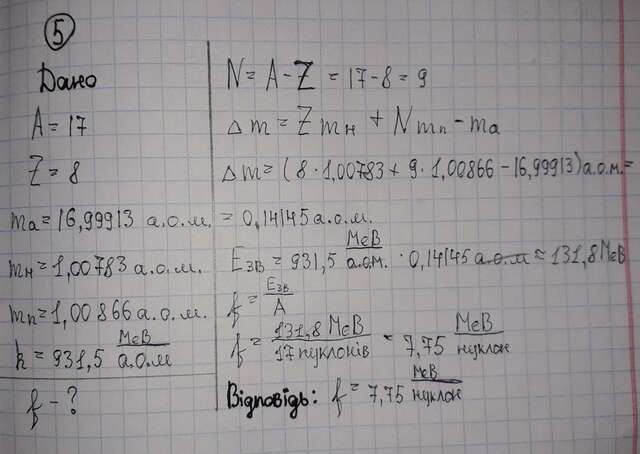 5
Дано
A = 17
Z = 8
ma = 16,99913 а.о.м.
mн = 1,00783 а.о.м.
mn = 1,00866 а.о.м.
k = 931,5 МеВ/а.о.м
f - ?
N = A - Z = 17 - 8 = 9
Δm = Zmн + Nmn - ma
Δm = (8 · 1,00783 + 9 · 1,00866 - 16,99913) а.о.м. =
= 0,14145 а.о.м.
Eзв = 931,5 МеВ/а.о.м. · 0,14145 а.о.м ≈ 131,8 МеВ
f = Eзв/A
f = 131,8 МеВ/17 нуклонів = 7,75 МеВ/нуклон
Відповідь: f = 7,75 МеВ/нуклон